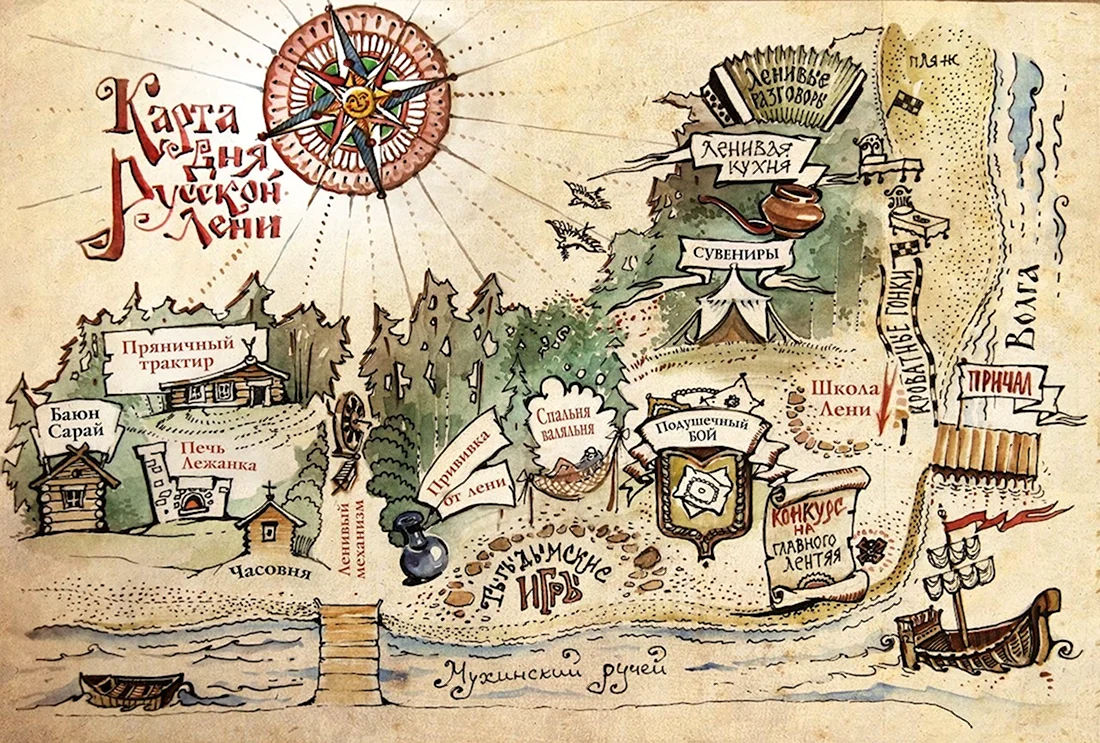 Карта
дня
Русской
лени
Ленивые
разговоры
пляж
Ленивая
кухня
СУВЕНИРЫ
Кроватные гонки
Волга
ПРИЧАЛ
Пряничный
трактир
Баюн
Сарай
Печь
Лежанка
Часовня
Ленивый
механизм
Прививка
от лени
Спальня
валяльня
Подушечный
БОЙ
Школа
Лени
КОНКУРС
НА
ГЛАВНОГО
ЛЕНТЯЯ
Тыгыдымские
ИГРЫ
Мухинский ручей